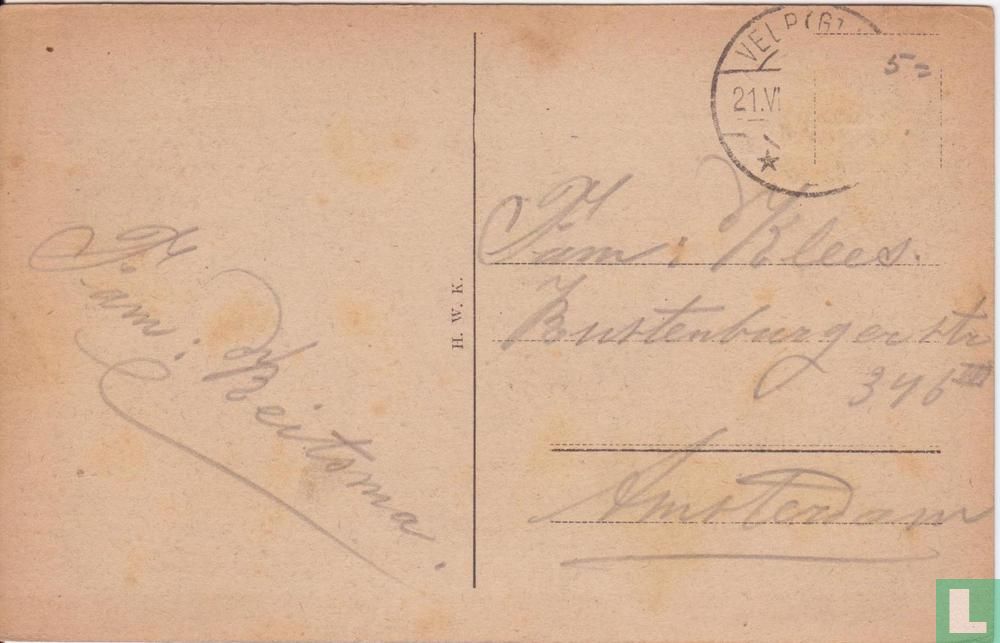 VELP (G)
21.VI
5=
Fam: Klees.
Rustenburgerstr
346 III
Amsterdam
Fam: Reitsma.
H. W. K.
L